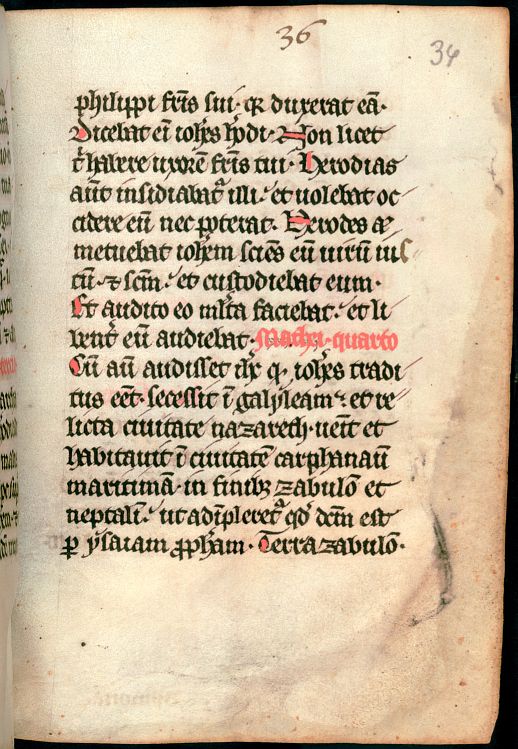 36
34
philippi fr̃is sui· q̃ duxerat eã·
Dicebat eĩ ioħes ħodi· Non licet
t̃ habere uxorẽ fr̃is tui· Herodias
aũt insidiabat᷒ illi· et uolebat oc
cidere eũ nec poterat· Herodes
metuebat ioħem sciẽs eũ uirũ ius
tũ· ⁊ sc̃m· et custodiebat eum·
Et audito eo ml̃ta faciebat· et li
bent̾ eũ audiebat· Mathei· quarto
Cũ aũ audisset iħc q· ioħes tradi
tus eẽt· secessit ĩ galyleam· et re
licta ciuitate nazareth· ueñit et
habitauit ĩ ciuitatẽ carphanaũ
maritimã· in finibꝫ zabulõ et
neptalĩ· ut adĩpleret᷒ qd̃ dc̃m est
ꝑ ysaiam ꝓph̃am· Terra zabulõ·